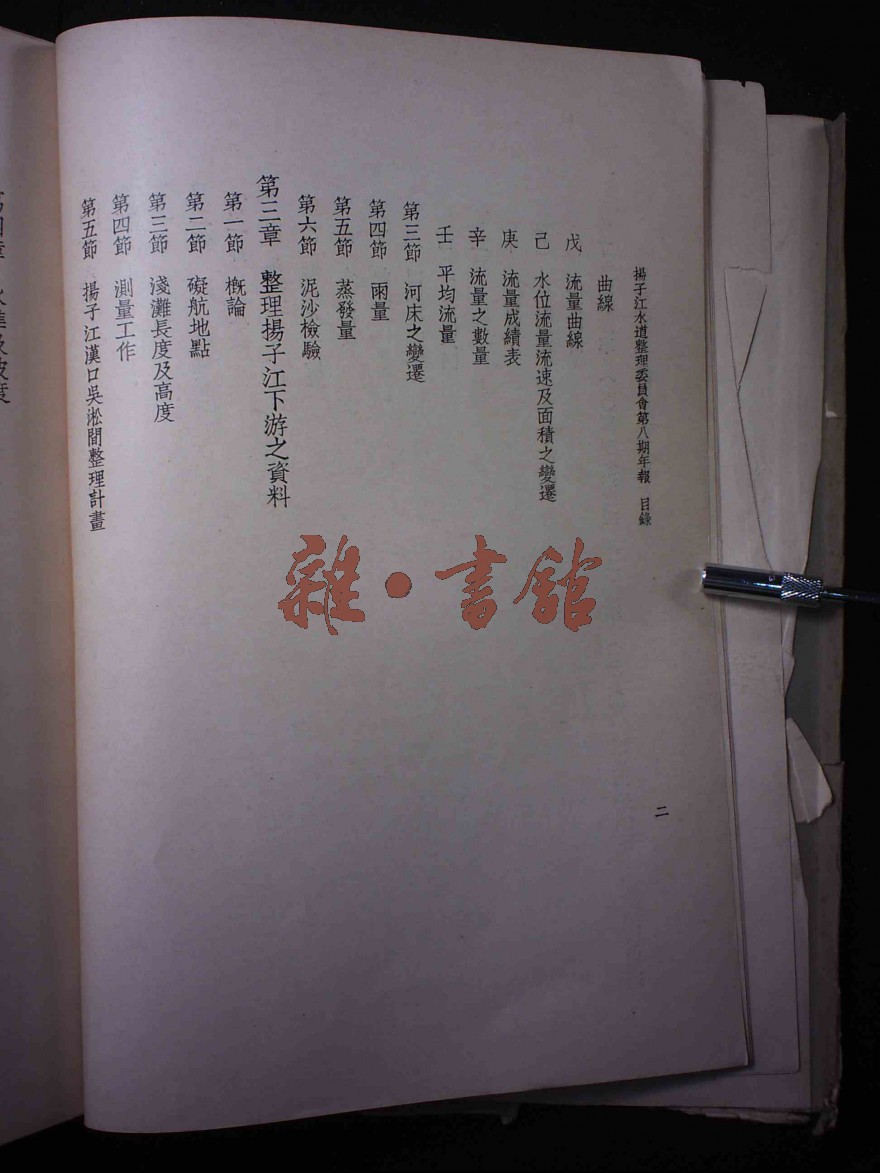 揚子江水道整理委員會第八期年報 目錄
曲線
戊 流量曲線
己 水位流量流速及面積之變遷
庚 流量成績表
辛 流量之數量
壬 平均流量
第三節 河床之變遷
第四節 雨量
第五節 蒸發量
第六節 泥沙檢驗
第三章 整理揚子江下游之資料
第一節 概論
第二節 礙航地點
第三節 淺灘長度及高度
第四節 測量工作
第五節 揚子江漢口吳淞間整理計畫
二
雜·書館